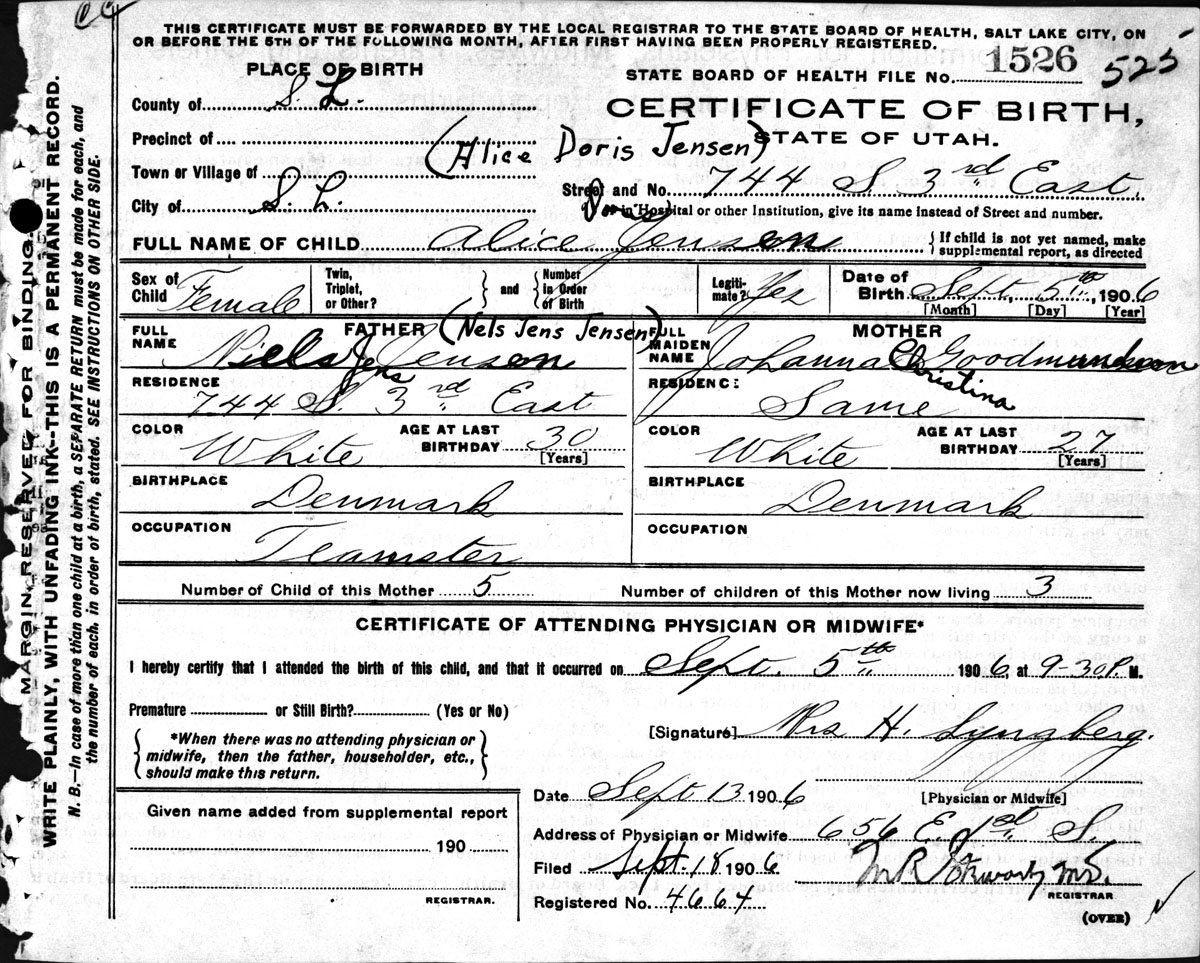 THIS CERTIFICATE MUST BE FORWARDED BY THE LOCAL REGISTRAR TO THE STATE BOARD OF HEALTH, SALT LAKE CITY, ON
OR BEFORE THE 5TH OF THE FOLLOWING MONTH, AFTER FIRST HAVING BEEN PROPERLY REGISTERED.
PLACE OF BIRTH
STATE BOARD OF HEALTH FILE NO. 1526 525
County of S. L.
CERTIFICATE OF BIRTH,
Precinct of
STATE OF UTAH.
(Alice Doris Jensen)
Town or Village of
Street and No. 744 S. 3rd East
City of S. L.
in Hospital or other Institution, give its name instead of Street and number.
FULL NAME OF CHILD Alice Jensen
If child is not yet named, make
supplemental report, as directed
Sex of Child Female
Twin, Triplet, or Other?
and
Number In Order of Birth
Legiti-mate? Yes
Date of Birth Sept. 5th 1906
[Month] [Day] [Year]
FATHER (Nels Jens Jensen)
FULL NAME Niels Jens Jenson
RESIDENCE
744 S. 3rd East
COLOR White
AGE AT LAST BIRTHDAY 30
[Years]
BIRTHPLACE
Denmark
OCCUPATION
Teamster
MOTHER
FULL MAIDEN NAME Johanna Christina Goodmundson
RESIDENCE:
Same
COLOR White
AGE AT LAST BIRTHDAY 27
[Years]
BIRTHPLACE
Denmark
OCCUPATION
Number of Child of this Mother 5
Number of children of this Mother now living 3
CERTIFICATE OF ATTENDING PHYSICIAN OR MIDWIFE*
I hereby certify that I attended the birth of this child, and that it occurred on Sept. 5th 1906 at 9-30 P. M.
Premature or Still Birth? (Yes or No)
[Signature] Mrs H. Lyngberg.
*When there was no attending physician or
midwife, then the father, householder, etc.,
should make this return.
[Physician or Midwife]
Date Sept 13 1906
Given name added from supplemental report
190
REGISTRAR.
Address of Physician or Midwife 656 E. 1st S.
Filed Sept. 18 1906
M.D.
REGISTRAR
Registered No. 4664
(OVER)
MARGIN RESERVED FOR BINDING.
WRITE PLAINLY, WITH UNFADING INK--THIS IS A PERMANENT RECORD.
N. B.--In case of more than one child at a birth, a SEPARATE RETURN must be made for each, and
the number of each, in order of birth, stated. SEE INSTRUCTIONS ON OTHER SIDE.